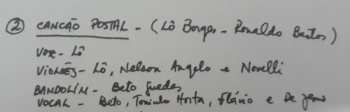 ② CANÇÃO POSTAL - (Lô Borges - Ronaldo Bastos)
VOZ - Lô
VIOLÕES - Lô, Nelson Angelo e Novelli
BANDOLIN - Beto Guedes
VOCAL - Beto, Toninho Horta, Flávio e De